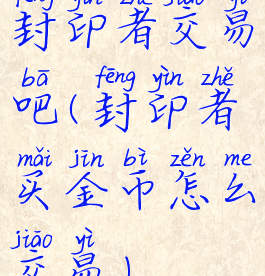 fēng yìn zhě jiāo yì
封印者交易
bā fēng yìn zhě
吧(封印者
mǎi jīn bì zěn me
买金币怎么
jiāo yì
交易)